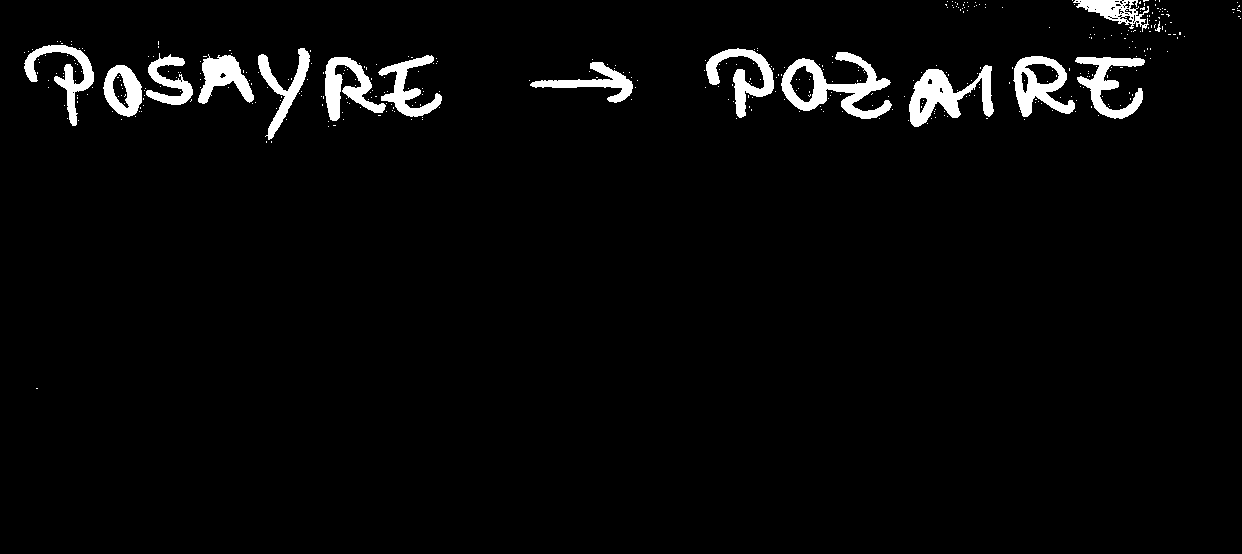 POSAYRE → POZAIRE